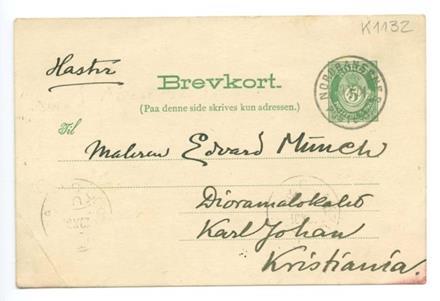 K1132
Haster
Brevkort.
(Paa denne side skrives kun adressen.)
Til
Maleren Edvard Munch
Dioramalokalet
Karl Johan
Kristiania.
5